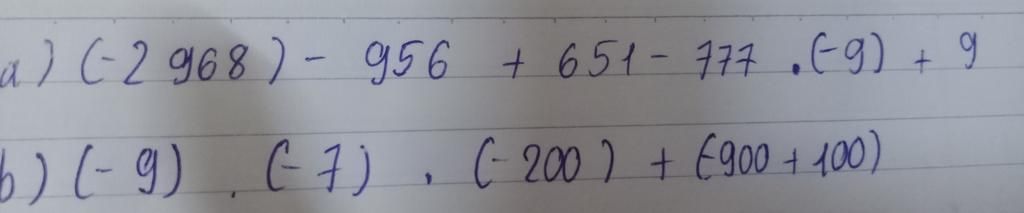 a) (-2 968) - 956 + 651 - 777 . (-9) + 9
b) (-9) . (-7) . (-200) + (-900 + 100)